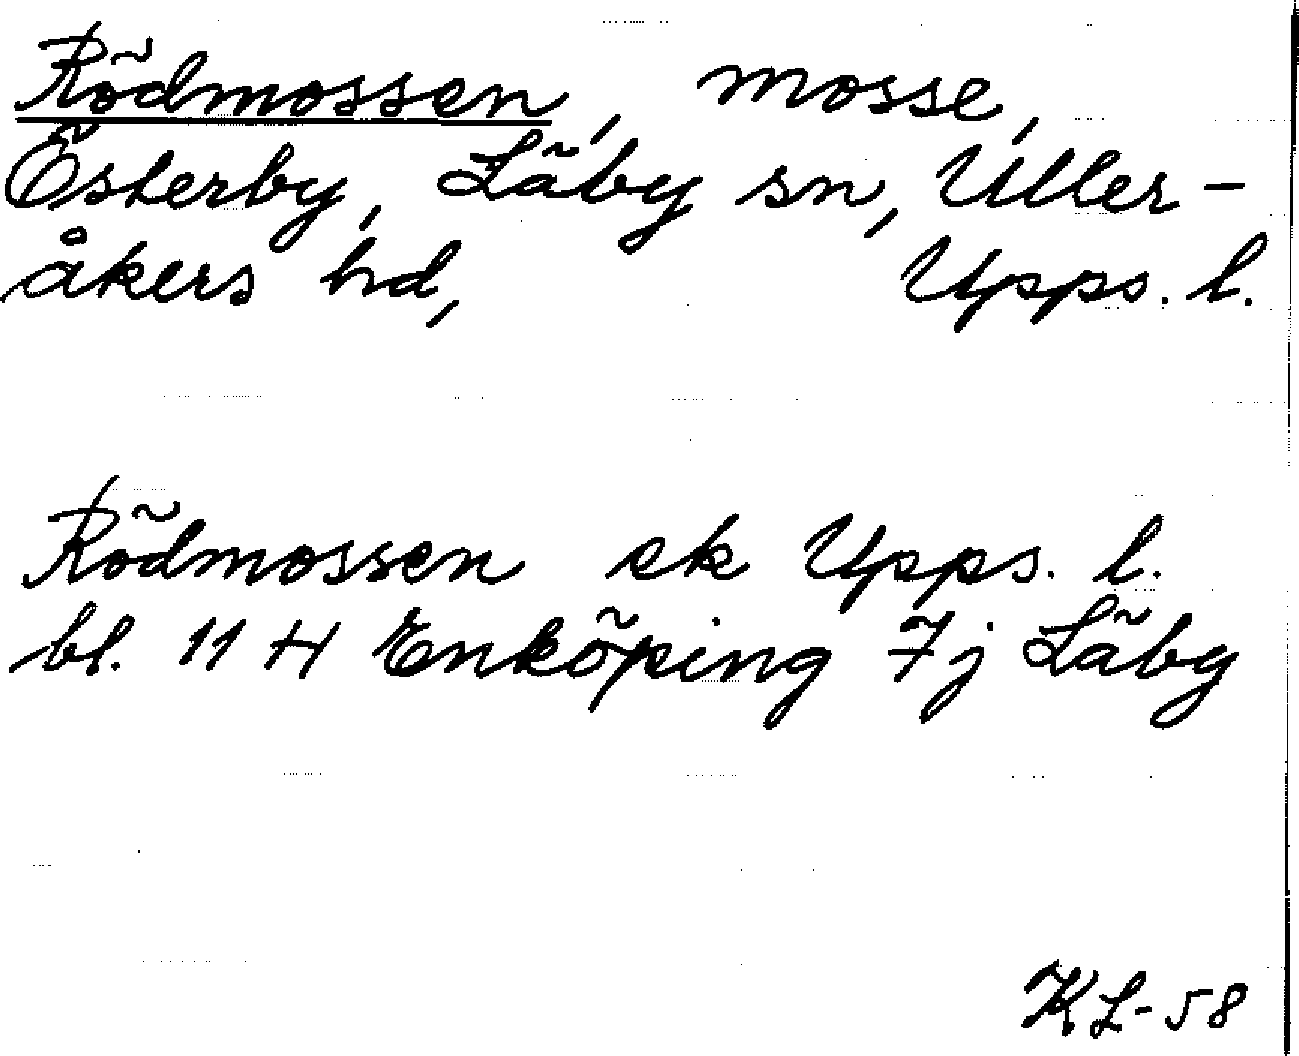 Rödmossen, mosse,
Österby, Läby sn, Uller-
åkers hd, Upps. l.
Rödmossen ek Upps. l.
bl. 11 H Enköping 7j Läby
KL-58